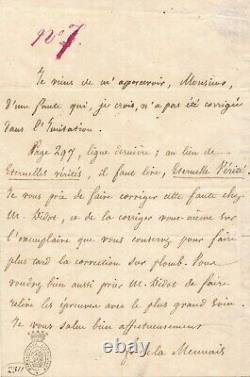 No 7.
Je viens de m'apercevoir, Monsieur,
d'une faute qui, je crois, n'a pas été corrigée
dans l'Imitation.
Page 297, ligne dernière; au lieu de
Eternelles vérités, il faut lire, Eternelle Vérité.
Je vous prie de faire corriger cette faute chez
M. Didot, et de la corriger vous-même sur
l'exemplaire que vous conservez pour faire
plus tard la correction sur plomb. Vous
voudrez bien aussi prier M. Didot de faire
relire les épreuves avec le plus grand soin.
Je vous salue bien affectueusement
F. de la Mennais